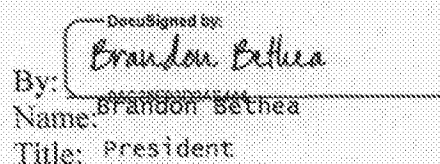 DocuSigned by:
Brandon Bethea
By:
Name: Brandon Bethea
Title: President